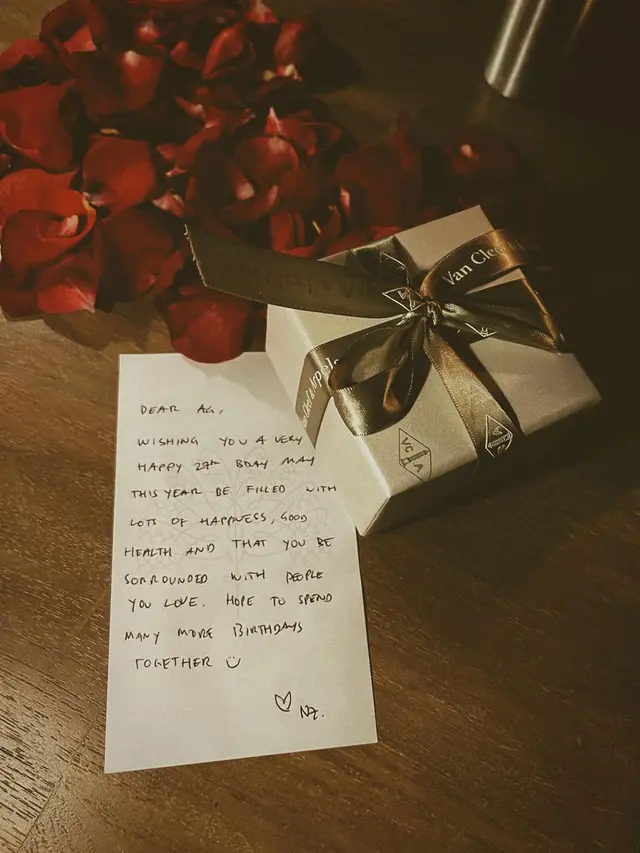 Van Cleef
Van Cleef & Arpels
VC A
DEAR AG,
WISHING YOU A VERY
HAPPY 27th BDAY MAY
THIS YEAR BE FILLED WITH
LOTS OF HAPPINESS, GOOD
HEALTH AND THAT YOU BE
SORROUNDED WITH PEOPLE
YOU LOVE. HOPE TO SPEND
MANY MORE BIRTHDAYS
TOGETHER
NZ.